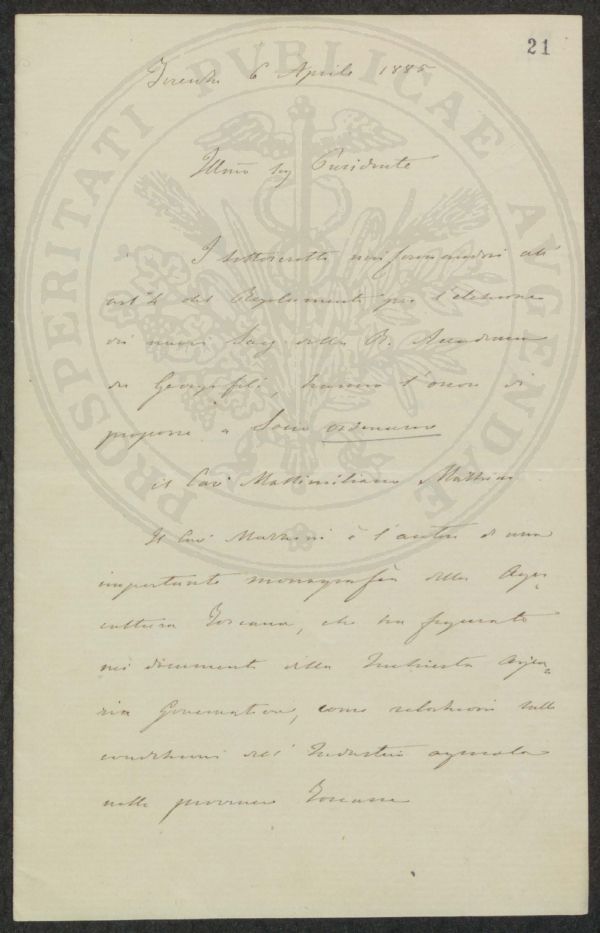 21
PROSPERITATI PVBLICAE AVGENDAE
Firenze 6 Aprile 1885
Illmo Sig Presidente
I sottoscritti uniformandosi all'
art° 4 del Regolamento per l'elezione
di nuovi Socj della R. Accademia
dei Georgofili, hanno l'onore di
proporre a Socio ordinario
il Cav Massimiliano Mazzini
Il Cav Mazzini è l'autore di una
importante monografia della Agri-
cultura Toscana, che ha figurato
nei documenti della Inchiesta Agra-
ria Governativa, come relazioni sulle
condizioni dell' Industria agricola
nelle provincie Toscane